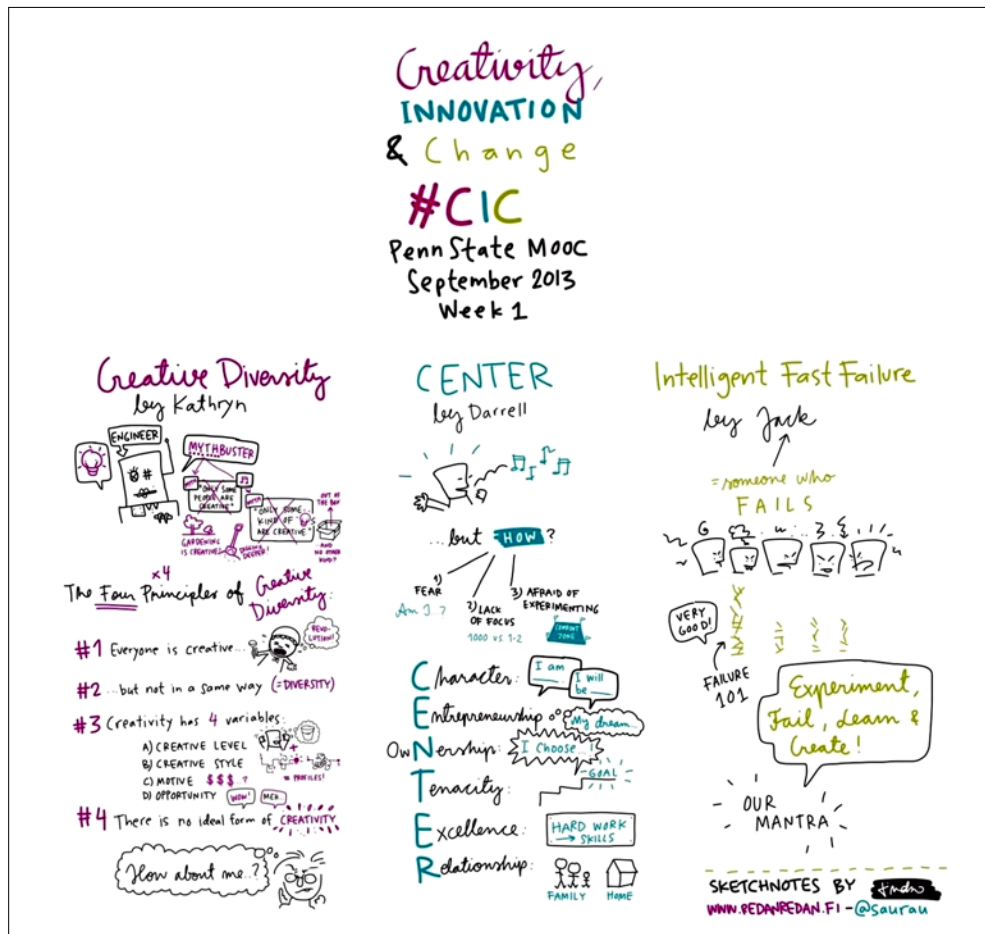 Creativity,
INNOVATION
& Change
#CIC
Penn State MOOC
September 2013
Week 1
Creative Diversity
by Kathryn
ENGINEER
MYTHBUSTER
MYTH
"ONLY SOME
PEOPLE ARE
CREATIVE"
MYTH
"ONLY SOME
KIND OF
ARE CREATIVE"
OUT OF
THE BOX
AND
NO OTHER
KIND?
GARDENING
IS CREATIVE!
DEEPER!
x4
The Four Principles of Creative
Diversity:
#1 Everyone is creative...
REVO-
LUTION!
#2 ...but not in a same way (=DIVERSITY)
#3 Creativity has 4 variables:
A) CREATIVE LEVEL
B) CREATIVE STYLE
C) MOTIVE $$$..?
D) OPPORTUNITY
= PROFILES!
WOW!
MEH..
#4 There is no ideal form of CREATIVITY
How about me..?
CENTER
by Darrell
...but HOW?
1)
FEAR
Am I..?
2) LACK
OF FOCUS
1000 vs. 1-2
3) AFRAID OF
EXPERIMENTING
COMFORT
ZONE
Character:
I am
I will
be
Entrepreneurship
My dream...
OwNership:
I choose...!
Tenacity:
GOAL
Excellence:
HARD WORK
→ SKILLS
Relationship:
FAMILY
HOME
Intelligent Fast Failure
by Jack
=someone who
FAILS
VERY
GOOD!
FAILURE
101
Experiment,
Fail, Learn &
Create!
OUR
MANTRA
SKETCHNOTES BY
WWW.REDANREDAN.FI - @saurau